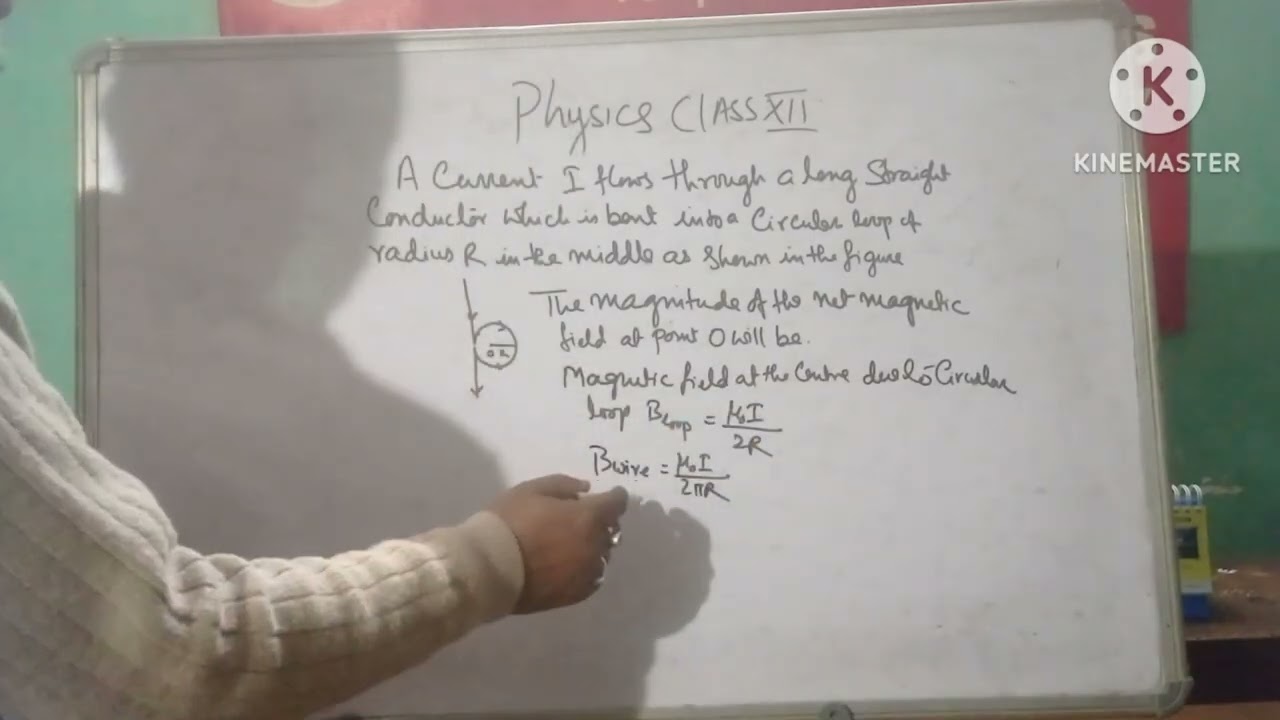 Physics CLASS XII
A Current I flows through a long Straight
Conductor which is bent into a Circular loop of
radius R in the middle as shown in the figure
The magnitude of the net magnetic
field at point O will be.
O R
Magnetic field at the Centre due to Circular
loop B_loop = μ₀I / 2R
B_wire = μ₀I / 2πR
K
KINEMASTER